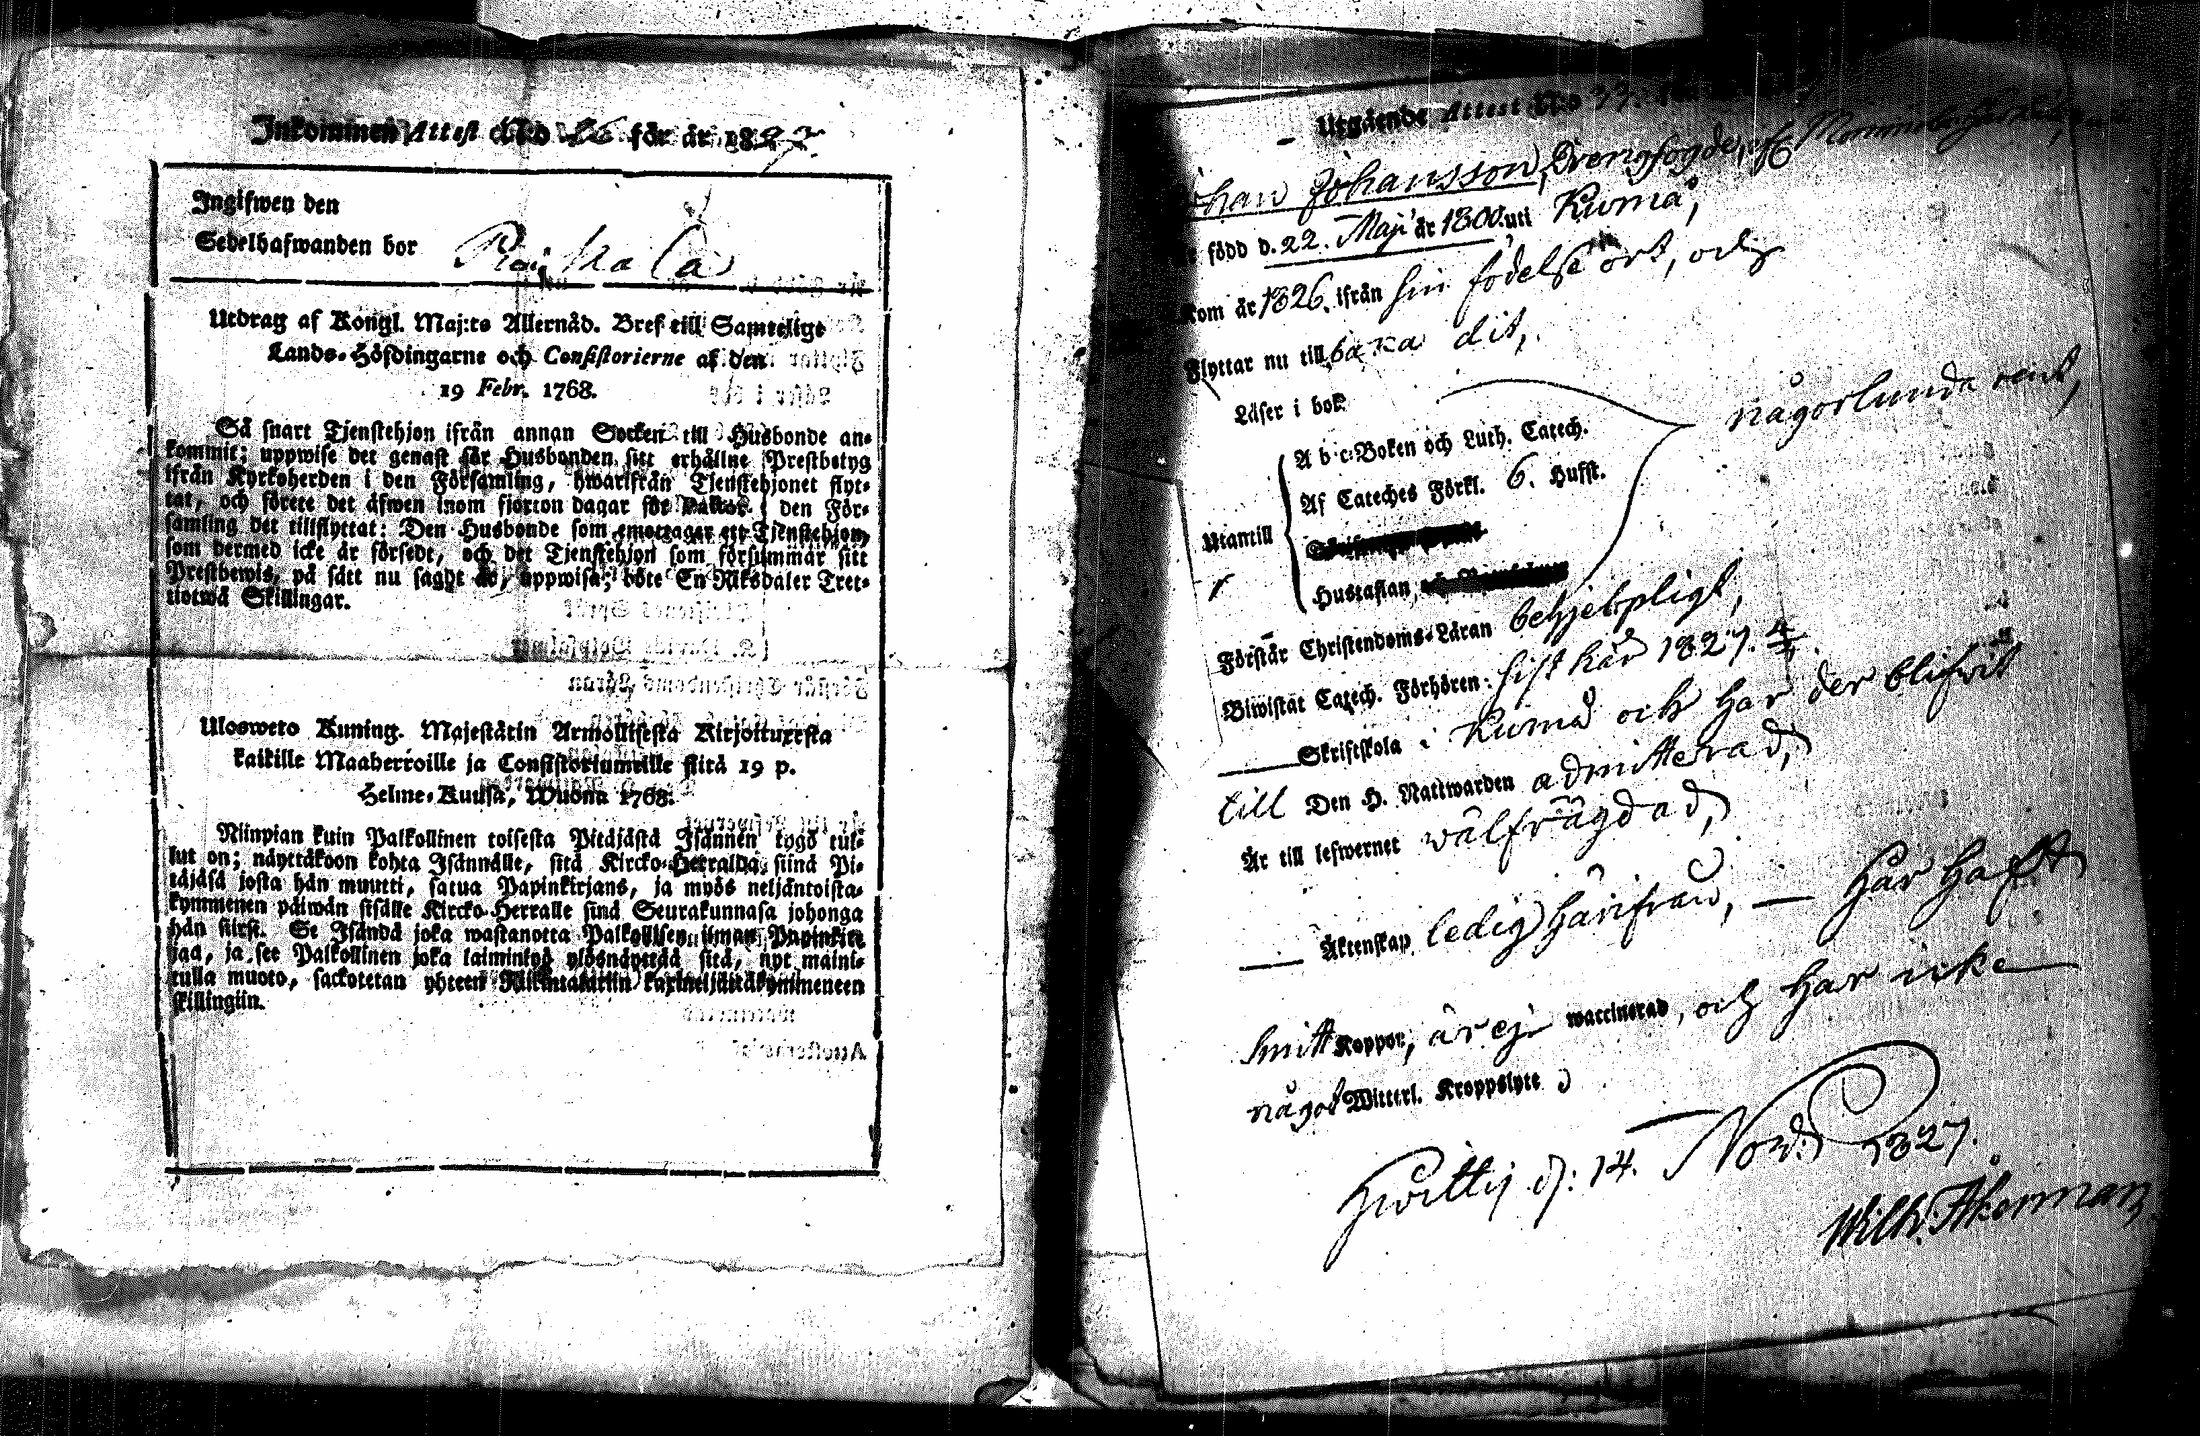 Inkommen Attest N:o 26 för år 1827
Ingifwen den
Sedelhafwanden bor Raikala
Utdrag af Kongl. Maj:ts Allernåd. Bref till Samtelige
Lands-Höfdingarne och Consistorierne af den
19 Febr. 1768.
Så snart Tjenstehjon ifrån annan Socken till Husbonde an-
kommit; uppwise det genast för Husbonden sitt erhållne Prestbetyg
ifrån Kyrkoherden i den Församling, hwarifrån Tjenstehjonet flyt-
tat, och förete det äfwen inom fjorton dagar för Pastor i den För-
samling det tillflyttat: Den Husbonde som emottager ett Tjenstehjon,
som dermed icke är försedt, och det Tjenstehjon som försummar sitt
Prestbewis, på sätt nu sagdt är, uppwisa; böte En Riksdaler Tret-
tiotwå Skillingar.
Ulosweto Kuning. Majestätin Armollisesta Kirjoituxesta
kaikille Maaherroille ja Consistoriumeille siitä 19 p.
Helme-Kuusa, Wuona 1768.
Niinpian kuin Palkollinen toisesta Pitäjästä Isännen tygö tul-
lut on; näyttäkoon kohta Isännälle, sitä Kircko-Herralda, siinä Pi-
täjäsä josta hän muutti, saatua Papinkirjans, ja myös neljäntoista-
kymmenen päiwän sisälle Kircko-Herralle sinä Seurakunnasa johonga
hän siirsi. Se Isändä joka wastanotta Palkollisen ilman Papinkir-
jaa, ja se Palkollinen joka laiminlyö ylösnäyttää sitä, nyt maini-
tulla muoto, sackotetan yhteen Riikintalariin kaxineljättäkymmeneen
skillingiin.
Utgående Attest N:o 33.
Johan Johansson, Drengfogde,
född d. 22. Maji år 1800. uti Kumå,
kom år 1826. ifrån sin födelse ort, och
Flyttar nu till baka dit,
Läser i bok
någorlunda rent,
A b c-Boken och Luth. Catech.
Af Cateches Förkl. 6. Hufst.
Utantill
Hustaflan,
Förstår Christendoms-Läran behjelpligt,
Biwistat Catech. Förhören: sist här 1827.
Skriftskola i Kumå och har der blifwit
till Den H. Nattwarden admitterad,
Är till lefwernet wälfrägdad,
Äktenskap ledig härifrån, — har haft
smittkoppor, är ej waccinerad, och har icke
något Witterl. Kroppslyte
Hwittis d: 14. Nov. 1827.
Wilh. Åkerman